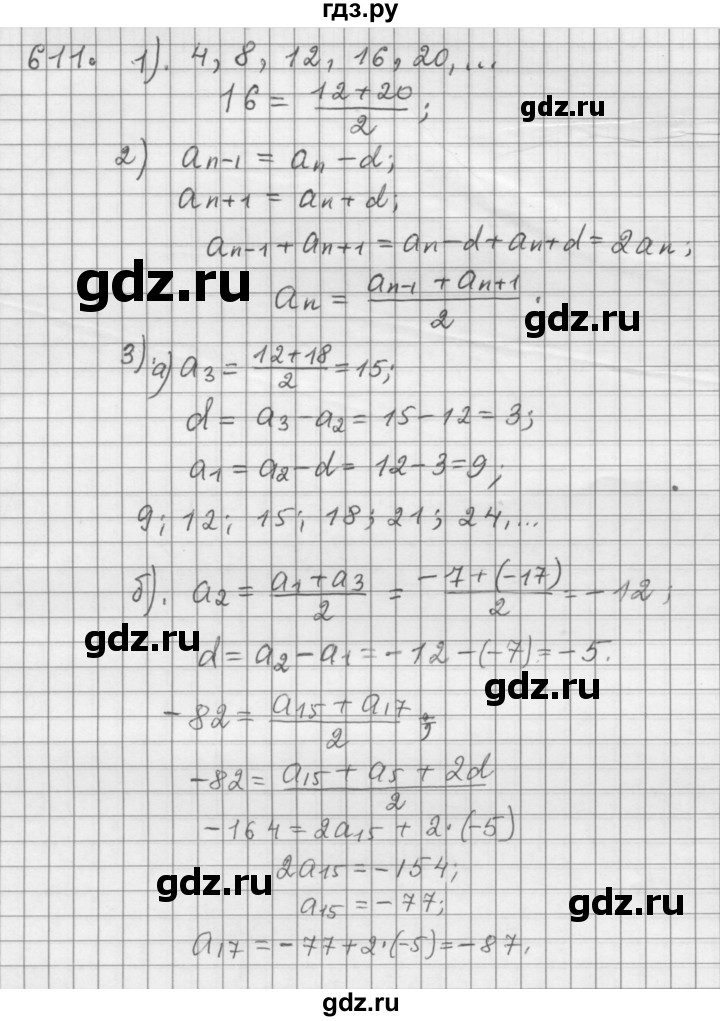 гдз.ру
611. 1). 4, 8, 12, 16, 20, ...
16 = (12+20)/2;
gdz.ru
2) aₙ₋₁ = aₙ - d;
aₙ₊₁ = aₙ + d;
aₙ₋₁ + aₙ₊₁ = aₙ - d + aₙ + d = 2aₙ;
gdz.ru
aₙ = (aₙ₋₁ + aₙ₊₁)/2.
gdz.ru
3) a) a₃ = (12+18)/2 = 15;
d = a₃ - a₂ = 15 - 12 = 3;
a₁ = a₂ - d = 12 - 3 = 9;
9; 12; 15; 18; 21; 24, ...
б). a₂ = (a₁ + a₃)/2 = (-7 + (-17))/2 = -12;
gdz.ru
d = a₂ - a₁ = -12 - (-7) = -5.
gdz.ru
-82 = (a₁₅ + a₁₇)/2;
-82 = (a₁₅ + a₅ + 2d)/2
-164 = 2a₁₅ + 2·(-5)
2a₁₅ = -154;
gdz.ru
a₁₅ = -77;
gdz.ru
a₁₇ = -77 + 2·(-5) = -87.
gdz.ru